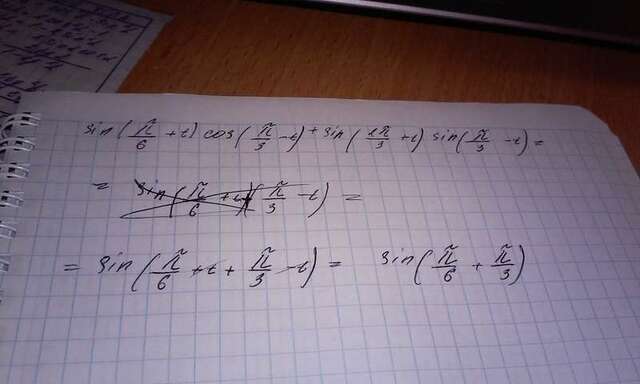 sin(π/6 + t) cos(π/3 - t) + sin(2π/3 + t) sin(π/3 - t) =
= sin(π/6 + t)(π/3 - t) =
= sin(π/6 + t + π/3 - t) = sin(π/6 + π/3)